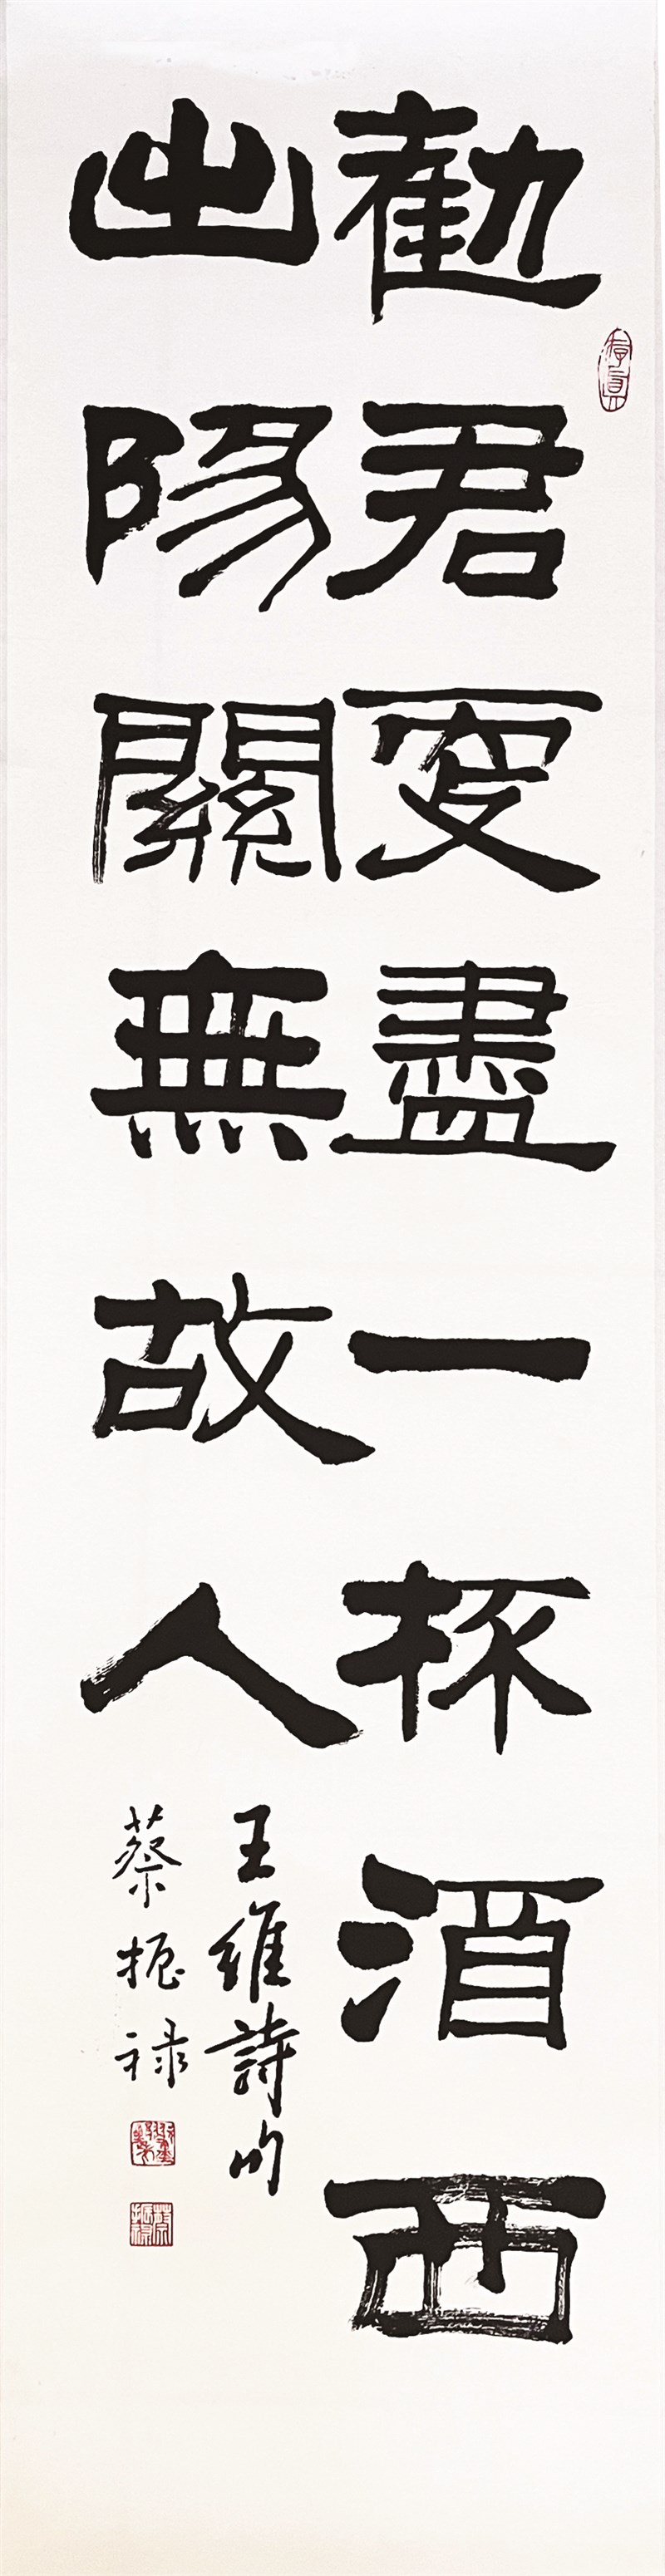 勸君更盡一杯酒西
出陽關無故人
王維詩句
蔡振禄